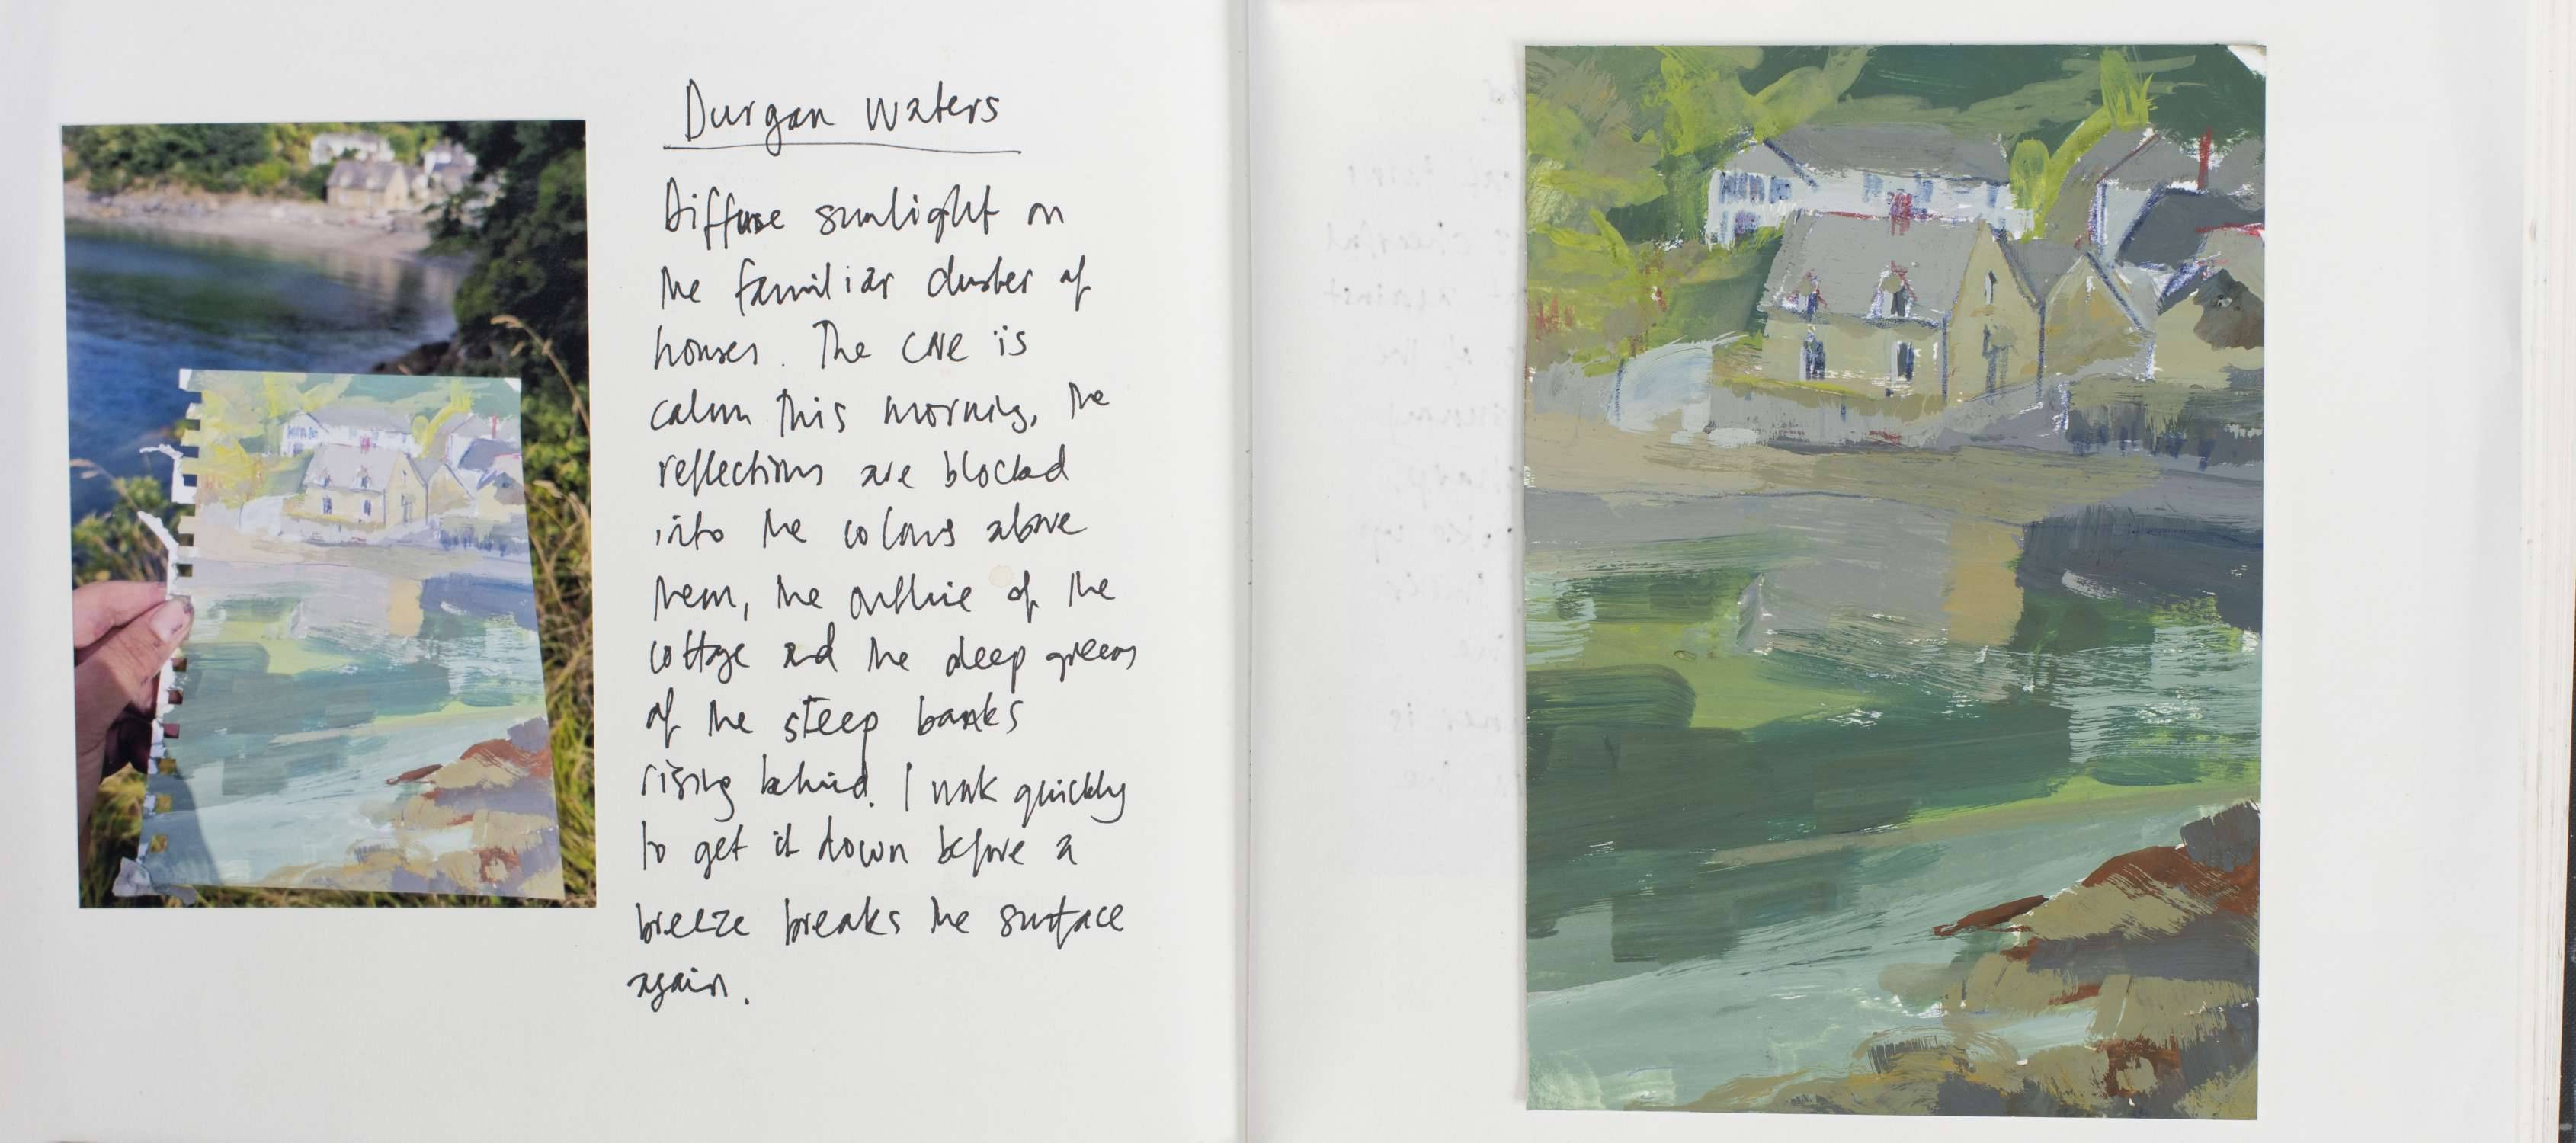 Durgan Waters
Diffuse sunlight on
the familiar cluster of
houses. The cove is
calm this morning, the
reflections are blocked
into the colours above
them, the outline of the
cottage and the deep greens
of the steep banks
rising behind. I work quickly
to get it down before a
breeze breaks the surface
again.